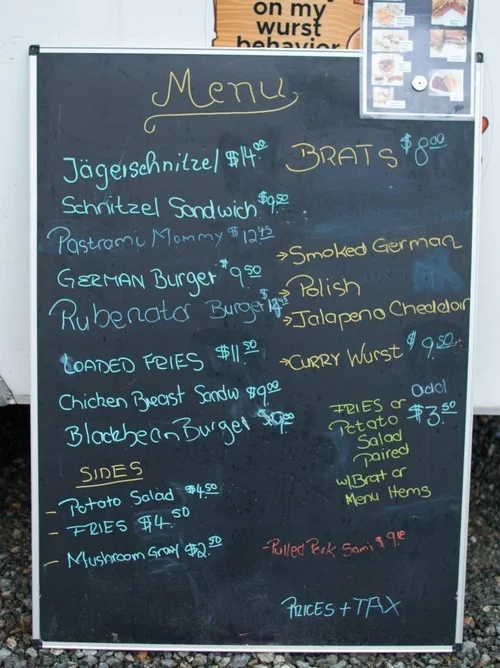 on my
wurst
behavior
Menu
Jägerschnitzel $14.00
Schnitzel Sandwich $9.50
Pastrami Mommy $12.45
GERMAN Burger $9.50
Rubenator Burger
LOADED FRIES $11.50
Chicken Breast Sandw $9.00
Blackbean Burger
SIDES
- Potato Salad $4.50
- FRIES $4.50
- Mushroom Gravy $2.50
BRATS $8.00
→Smoked German
→Polish
→Jalapeno Cheddar
→CURRY WURST $9.50
FRIES or
Potato
Salad
paired
w/Brat or
Menu Items
add
$3.50
-Pulled Pork Sami
PRICES + TAX